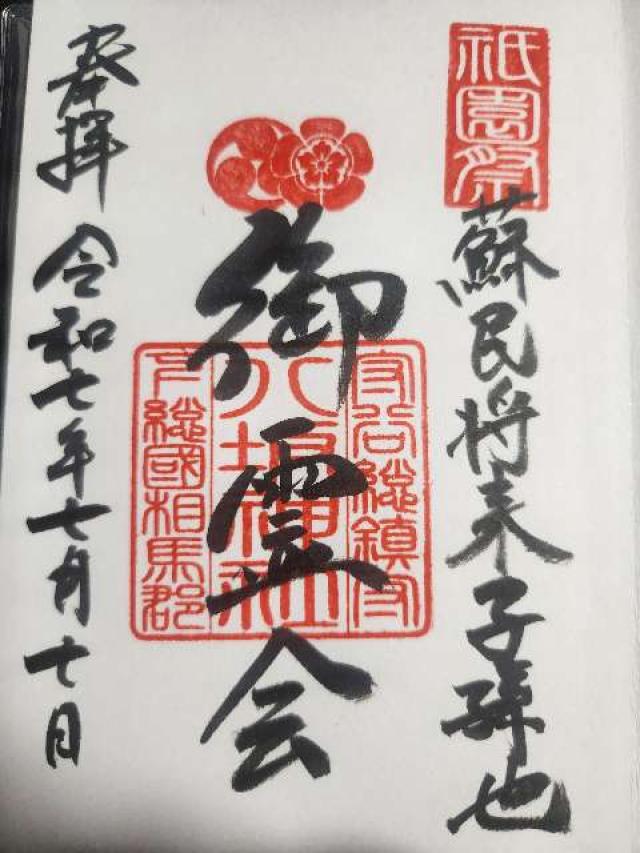 祇園祭
蘇民将来子孫也
御霊会
守谷総鎮守
八坂神社
下総國相馬郡
奉拝
令和七年七月十日